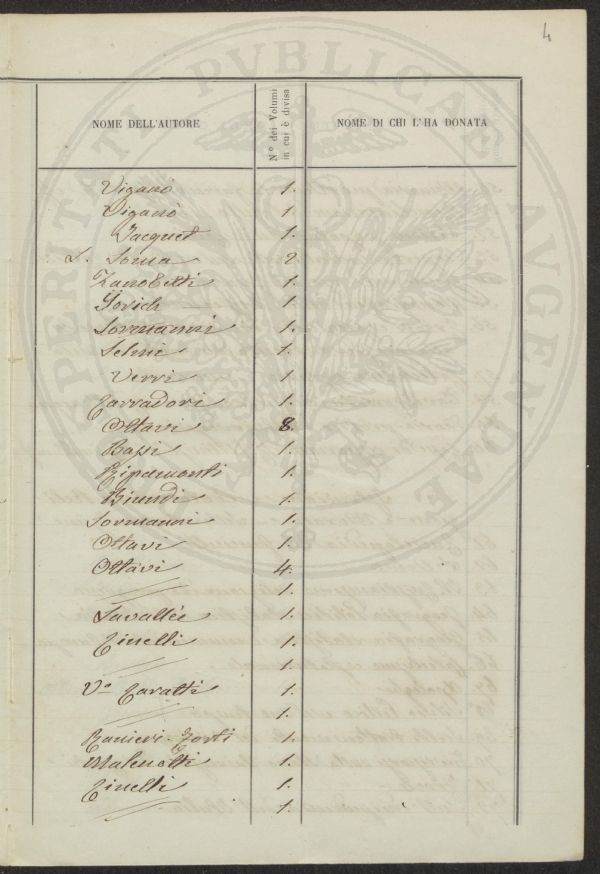 4
NOME DELL'AUTORE
N.° dei Volumi
in cui è divisa
NOME DI CHI L'HA DONATA
Viganò 1.
Viganò 1.
Jacquet 1.
L. Soma 2.
Zanobetti 1.
Sorich 1.
Sormanni 1.
Selmi 1.
Verri 1
Carradori 1.
Ottavi 8.
Bassi 1.
Ripamonti 1.
Biundi 1.
Sormanni 1.
Ottavi 1.
Ottavi 4.
1.
Lavallée 1.
Cinelli 1.
1.
Caratti 1.
1.
Ranieri-Forti 1.
Malenotti 1.
Cinelli 1.
1.
PVBLICAE
AVGENDAE